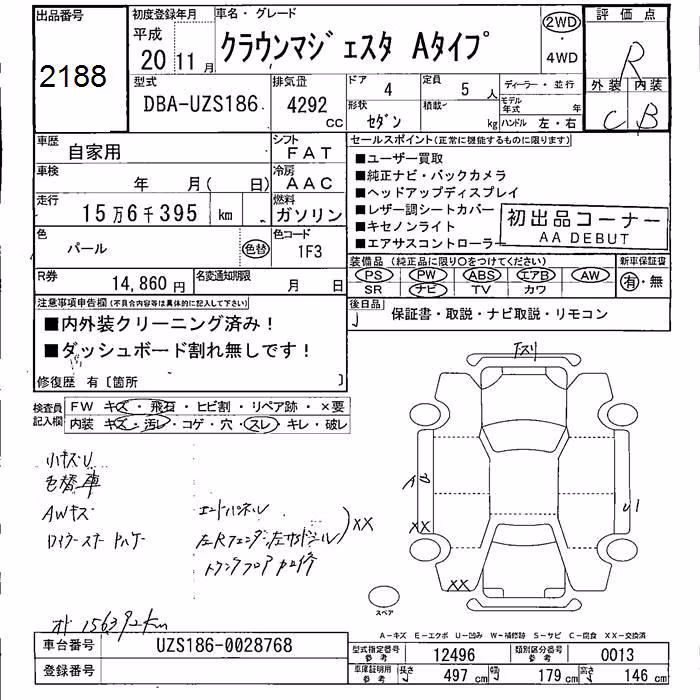 出品番号
2188
初度登録年月
平成
20 11月
車名・グレード
クラウンマジェスタ Aタイプ
2WD
・
4WD
評価点
R
外装 内装
C B
型式
DBA-UZS186
排気量
4292
CC
ドア
4
定員
5 人
形状
セダン
積載
kg
ディーラー・並行
モデル年式 年
ハンドル 左・右
車歴
自家用
シフト
FAT
車検
年 月( 日)
冷房
AAC
走行
15万6千395 km
燃料
ガソリン
色
パール
色替
色コード
1F3
R券
14,860円
名変通知期限
月 日
セールスポイント(正常に機能するものに限ります)
■ユーザー買取
■純正ナビ・バックカメラ
■ヘッドアップディスプレイ
■レザー調シートカバー
■キセノンライト
■エアサスコントローラー
初出品コーナー
AA DEBUT
装備品(純正品に限り○をつけてください)
PS PW ABS エアB AW
SR ナビ TV カワ
新車保証書
有・無
後日品
保証書・取説・ナビ取説・リモコン
注意事項申告欄(不具合内容等は具体的に記入して下さい)
■内外装クリーニング済み！
■ダッシュボード割れ無しです！
修復歴 有〔箇所 〕
検査員記入欄
FW キズ・飛石・ヒビ割・リペア跡・×要
内装 キズ・汚レ・コゲ・穴・スレ・キレ・破レ
小キズU
色替車
AWキズ
エンドパネル
XX
A
U
XX
U1
XX
スペア
A-キズ E-エクボ U-凹み W-補修跡 S-サビ C-腐食 XX-交換済
車台番号
UZS186-0028768
登録番号
型式指定番号
参考
12496
類別区分番号
参考
0013
車庫証明用
参考
長さ 497 cm 幅 179 cm 高さ 146 cm